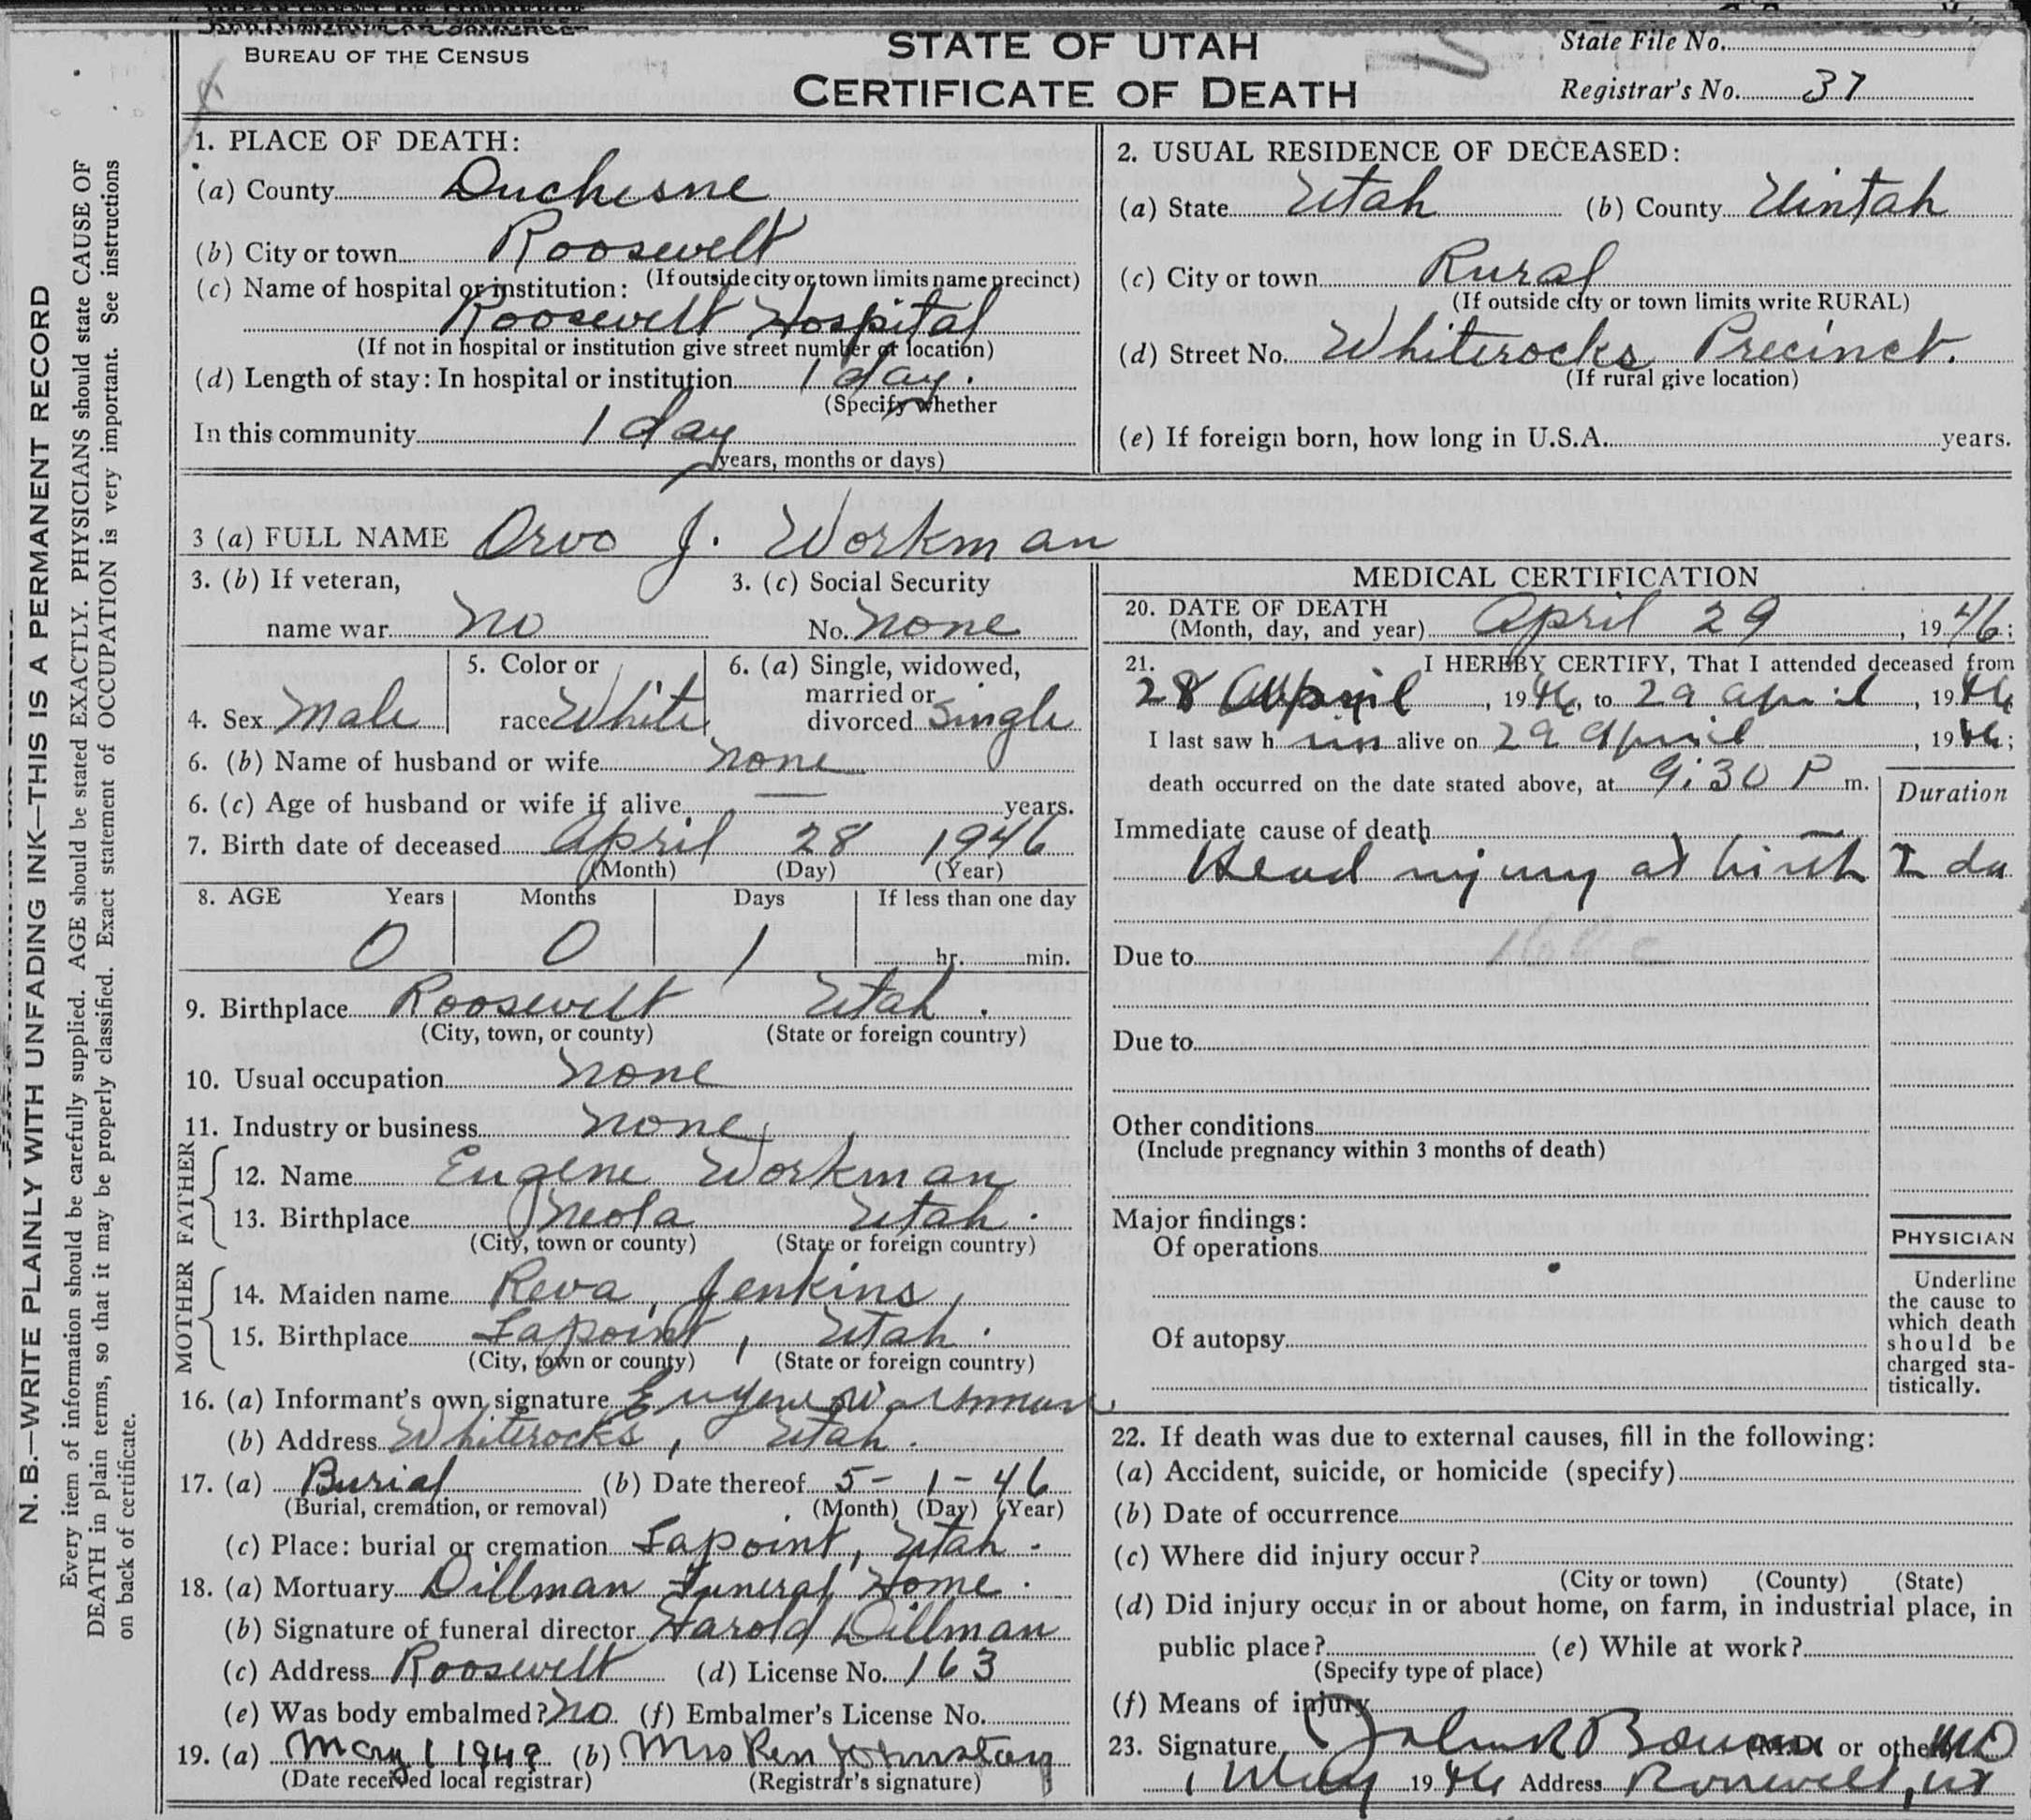 BUREAU OF THE CENSUS
STATE OF UTAH
CERTIFICATE OF DEATH
State File No.
Registrar's No. 37
N. B.—WRITE PLAINLY WITH UNFADING INK—THIS IS A PERMANENT RECORD
Every item of information should be carefully supplied. AGE should be stated EXACTLY. PHYSICIANS should state CAUSE OF
DEATH in plain terms, so that it may be properly classified. Exact statement of OCCUPATION is very important. See instructions
on back of certificate.
1. PLACE OF DEATH:
(a) County Duchesne
(b) City or town Roosevelt
(If outside city or town limits name precinct)
(c) Name of hospital or institution:
Roosevelt Hospital
(If not in hospital or institution give street number or location)
(d) Length of stay: In hospital or institution 1 day.
(Specify whether
In this community 1 day
years, months or days)
2. USUAL RESIDENCE OF DECEASED:
(a) State Utah (b) County Uintah
(c) City or town Rural
(If outside city or town limits write RURAL)
(d) Street No. Whiterocks Precinct.
(If rural give location)
(e) If foreign born, how long in U.S.A. years.
3 (a) FULL NAME Orvo J. Workman
3. (b) If veteran,
name war no
3. (c) Social Security
No. none
4. Sex Male
5. Color or
race White
6. (a) Single, widowed,
married or
divorced single
6. (b) Name of husband or wife none
6. (c) Age of husband or wife if alive — years.
7. Birth date of deceased April 28 1946
(Month) (Day) (Year)
8. AGE Years Months Days If less than one day
0 0 1 hr. min.
9. Birthplace Roosevelt Utah.
(City, town, or county) (State or foreign country)
10. Usual occupation none
11. Industry or business none
FATHER
12. Name Eugene Workman
13. Birthplace Neola Utah.
(City, town or county) (State or foreign country)
MOTHER
14. Maiden name Reva Jenkins
15. Birthplace Lapoint, Utah.
(City, town or county) (State or foreign country)
16. (a) Informant's own signature Eugene Workman
(b) Address Whiterocks, Utah.
17. (a) Burial (b) Date thereof 5-1-46
(Burial, cremation, or removal) (Month) (Day) (Year)
(c) Place: burial or cremation Lapoint, Utah.
18. (a) Mortuary Dillman Funeral Home.
(b) Signature of funeral director Harold Dillman
(c) Address Roosevelt (d) License No. 163
(e) Was body embalmed? no (f) Embalmer's License No.
19. (a) May 1 1949 (b) Mrs Ken Johnston
(Date received local registrar) (Registrar's signature)
MEDICAL CERTIFICATION
20. DATE OF DEATH
(Month, day, and year) April 29, 1946;
21. I HEREBY CERTIFY, That I attended deceased from
28 April, 1946, to 29 April, 1946
I last saw him alive on 29 April, 1946;
death occurred on the date stated above, at 9:30 P m.
Duration
Immediate cause of death
Head injury at birth 2 da
Due to
Due to
Other conditions
(Include pregnancy within 3 months of death)
Major findings:
Of operations
Of autopsy
PHYSICIAN
Underline
the cause to
which death
should be
charged sta-
tistically.
22. If death was due to external causes, fill in the following:
(a) Accident, suicide, or homicide (specify)
(b) Date of occurrence
(c) Where did injury occur?
(City or town) (County) (State)
(d) Did injury occur in or about home, on farm, in industrial place, in
public place? (e) While at work?
(Specify type of place)
(f) Means of injury
23. Signature (M.D. or other) MD
1 May 1946 Address Roosevelt, Ut